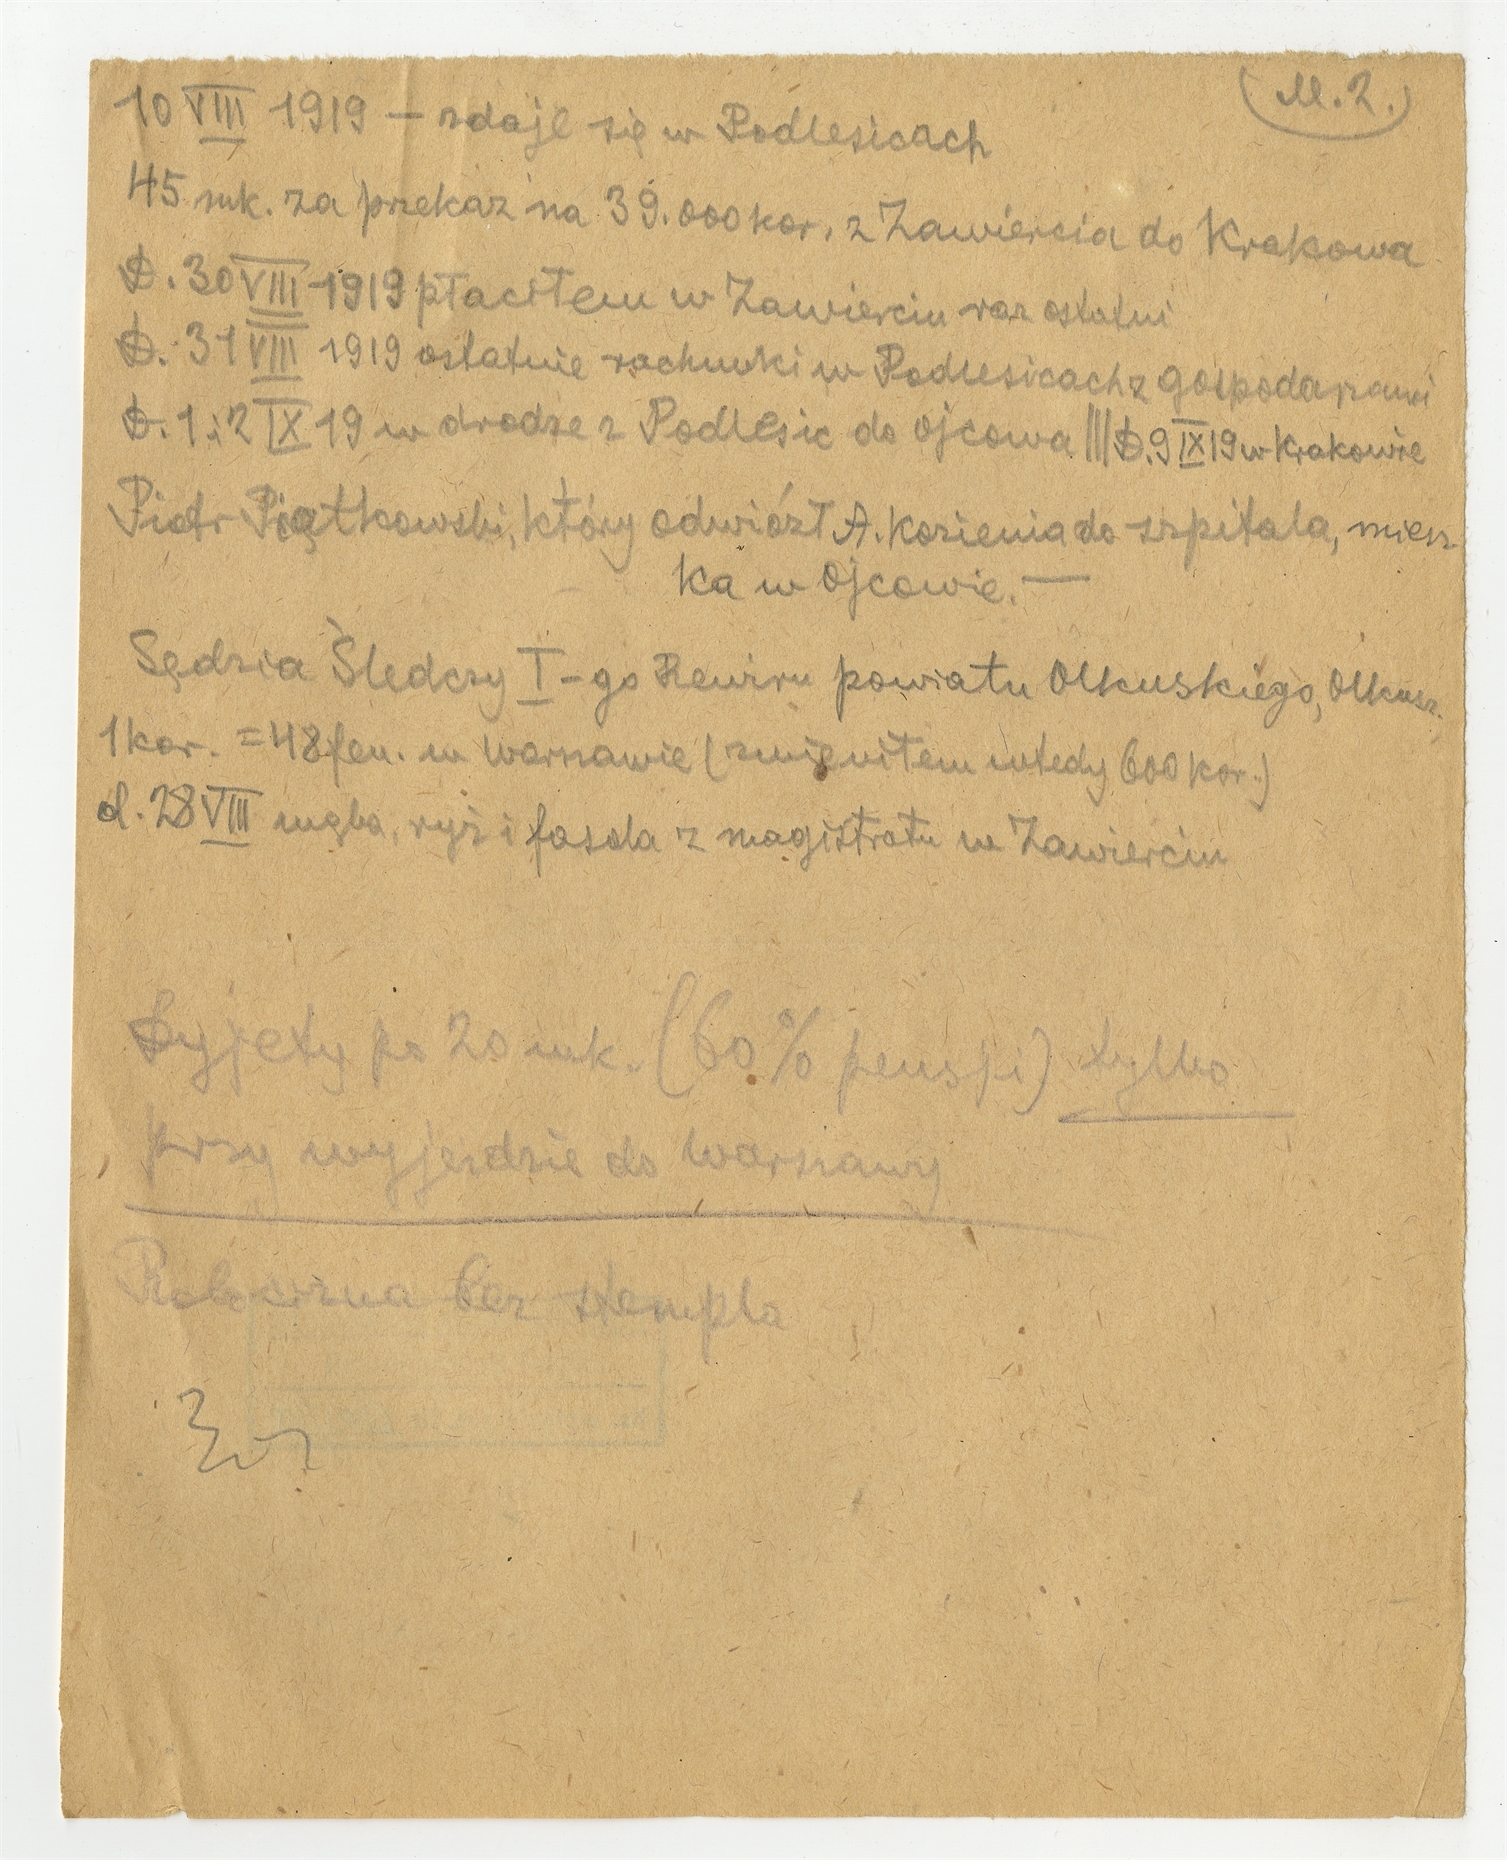 (M.2.)
10 VIII 1919 – zdaje się w Podlesicach
45 mk. za przekaz na 39.000 kor. z Zawiercia do Krakowa
D. 30 VIII 1919 płaciłem w Zawierciu raz ostatni
D. 31 VIII 1919 ostatnie rachunki w Podlesicach z gospodarzami
D. 1 i 2 IX 19 w drodze z Podlesic do Ojcowa ||| D. 9 IX 19 w Krakowie
Piotr Piątkowski, który odwiózł A. Kozienia do szpitala, miesz-
ka w Ojcowie. —
Sędzia Śledczy I-go Rewiru powiatu Olkuskiego, Olkusz.
1 kor. = 48 fen. w Warszawie (zmieniłem wtedy 600 kor.)
d. 28 VIII mąka, ryż i fasola z magistratu w Zawierciu
Dyjety po 20 mk. (60% pensji) tylko
przy wyjeździe do Warszawy
Robocizna bez stempla